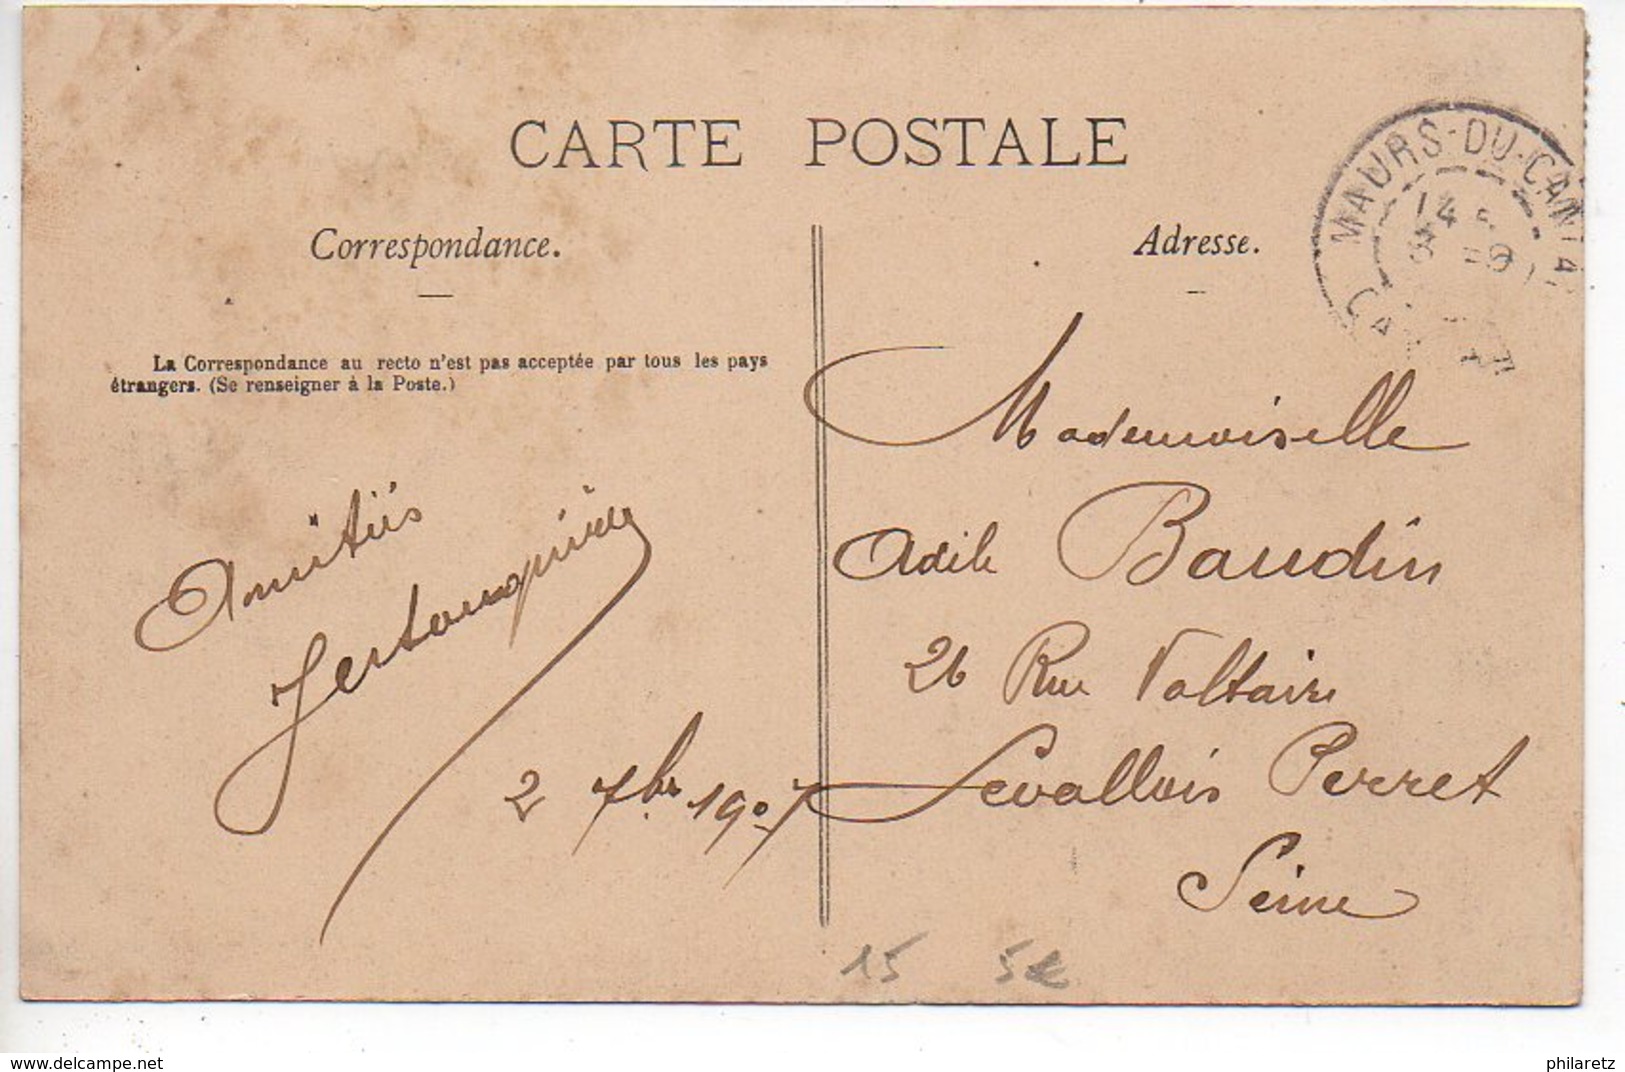 CARTE POSTALE
MAURS-DU-CANTAL
Correspondance.
Adresse.
La Correspondance au recto n'est pas acceptée par tous les pays
étrangers. (Se renseigner à la Poste.)
Mademoiselle
Baudin
26 Rue Voltaire
Levallois Perret
Seine
Amitiés
2 7bre 1907
15 5€
www.delcampe.net
philaretz